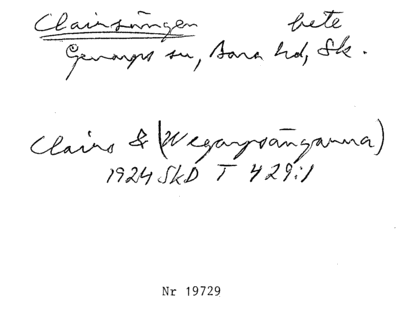 Clairsången bete
Genarps sn, Bara hd, Sk.
Clairs & (Wegarpsångarna)
1924 SkD T 429:1
Nr 19729